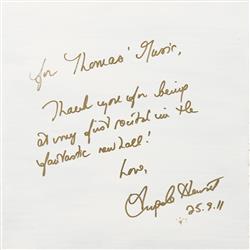 for Thomas' Music,
Thank you for being
at my first recital in the
fantastic new hall!
Love,
Angela Hewitt
25.9.11